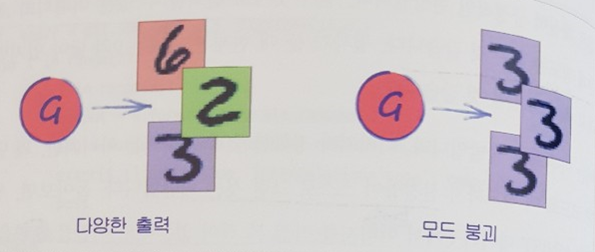 G
6
2
3
다양한 출력
G
3
3
3
모드 붕괴